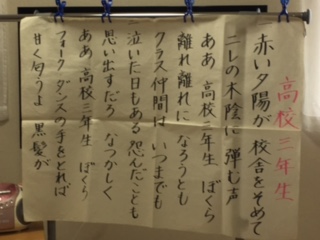 高校三年生
赤い夕陽が 校舎をそめて
ニレの木陰に 弾む声
ああ 高校三年生 ぼくら
離れ離れに なろうとも
クラス仲間は いつまでも
泣いた日もある 怨んだことも
思い出すだろ なつかしく
ああ 高校三年生 ぼくら
フォークダンスの手をとれば
甘く匂うよ 黒髪が